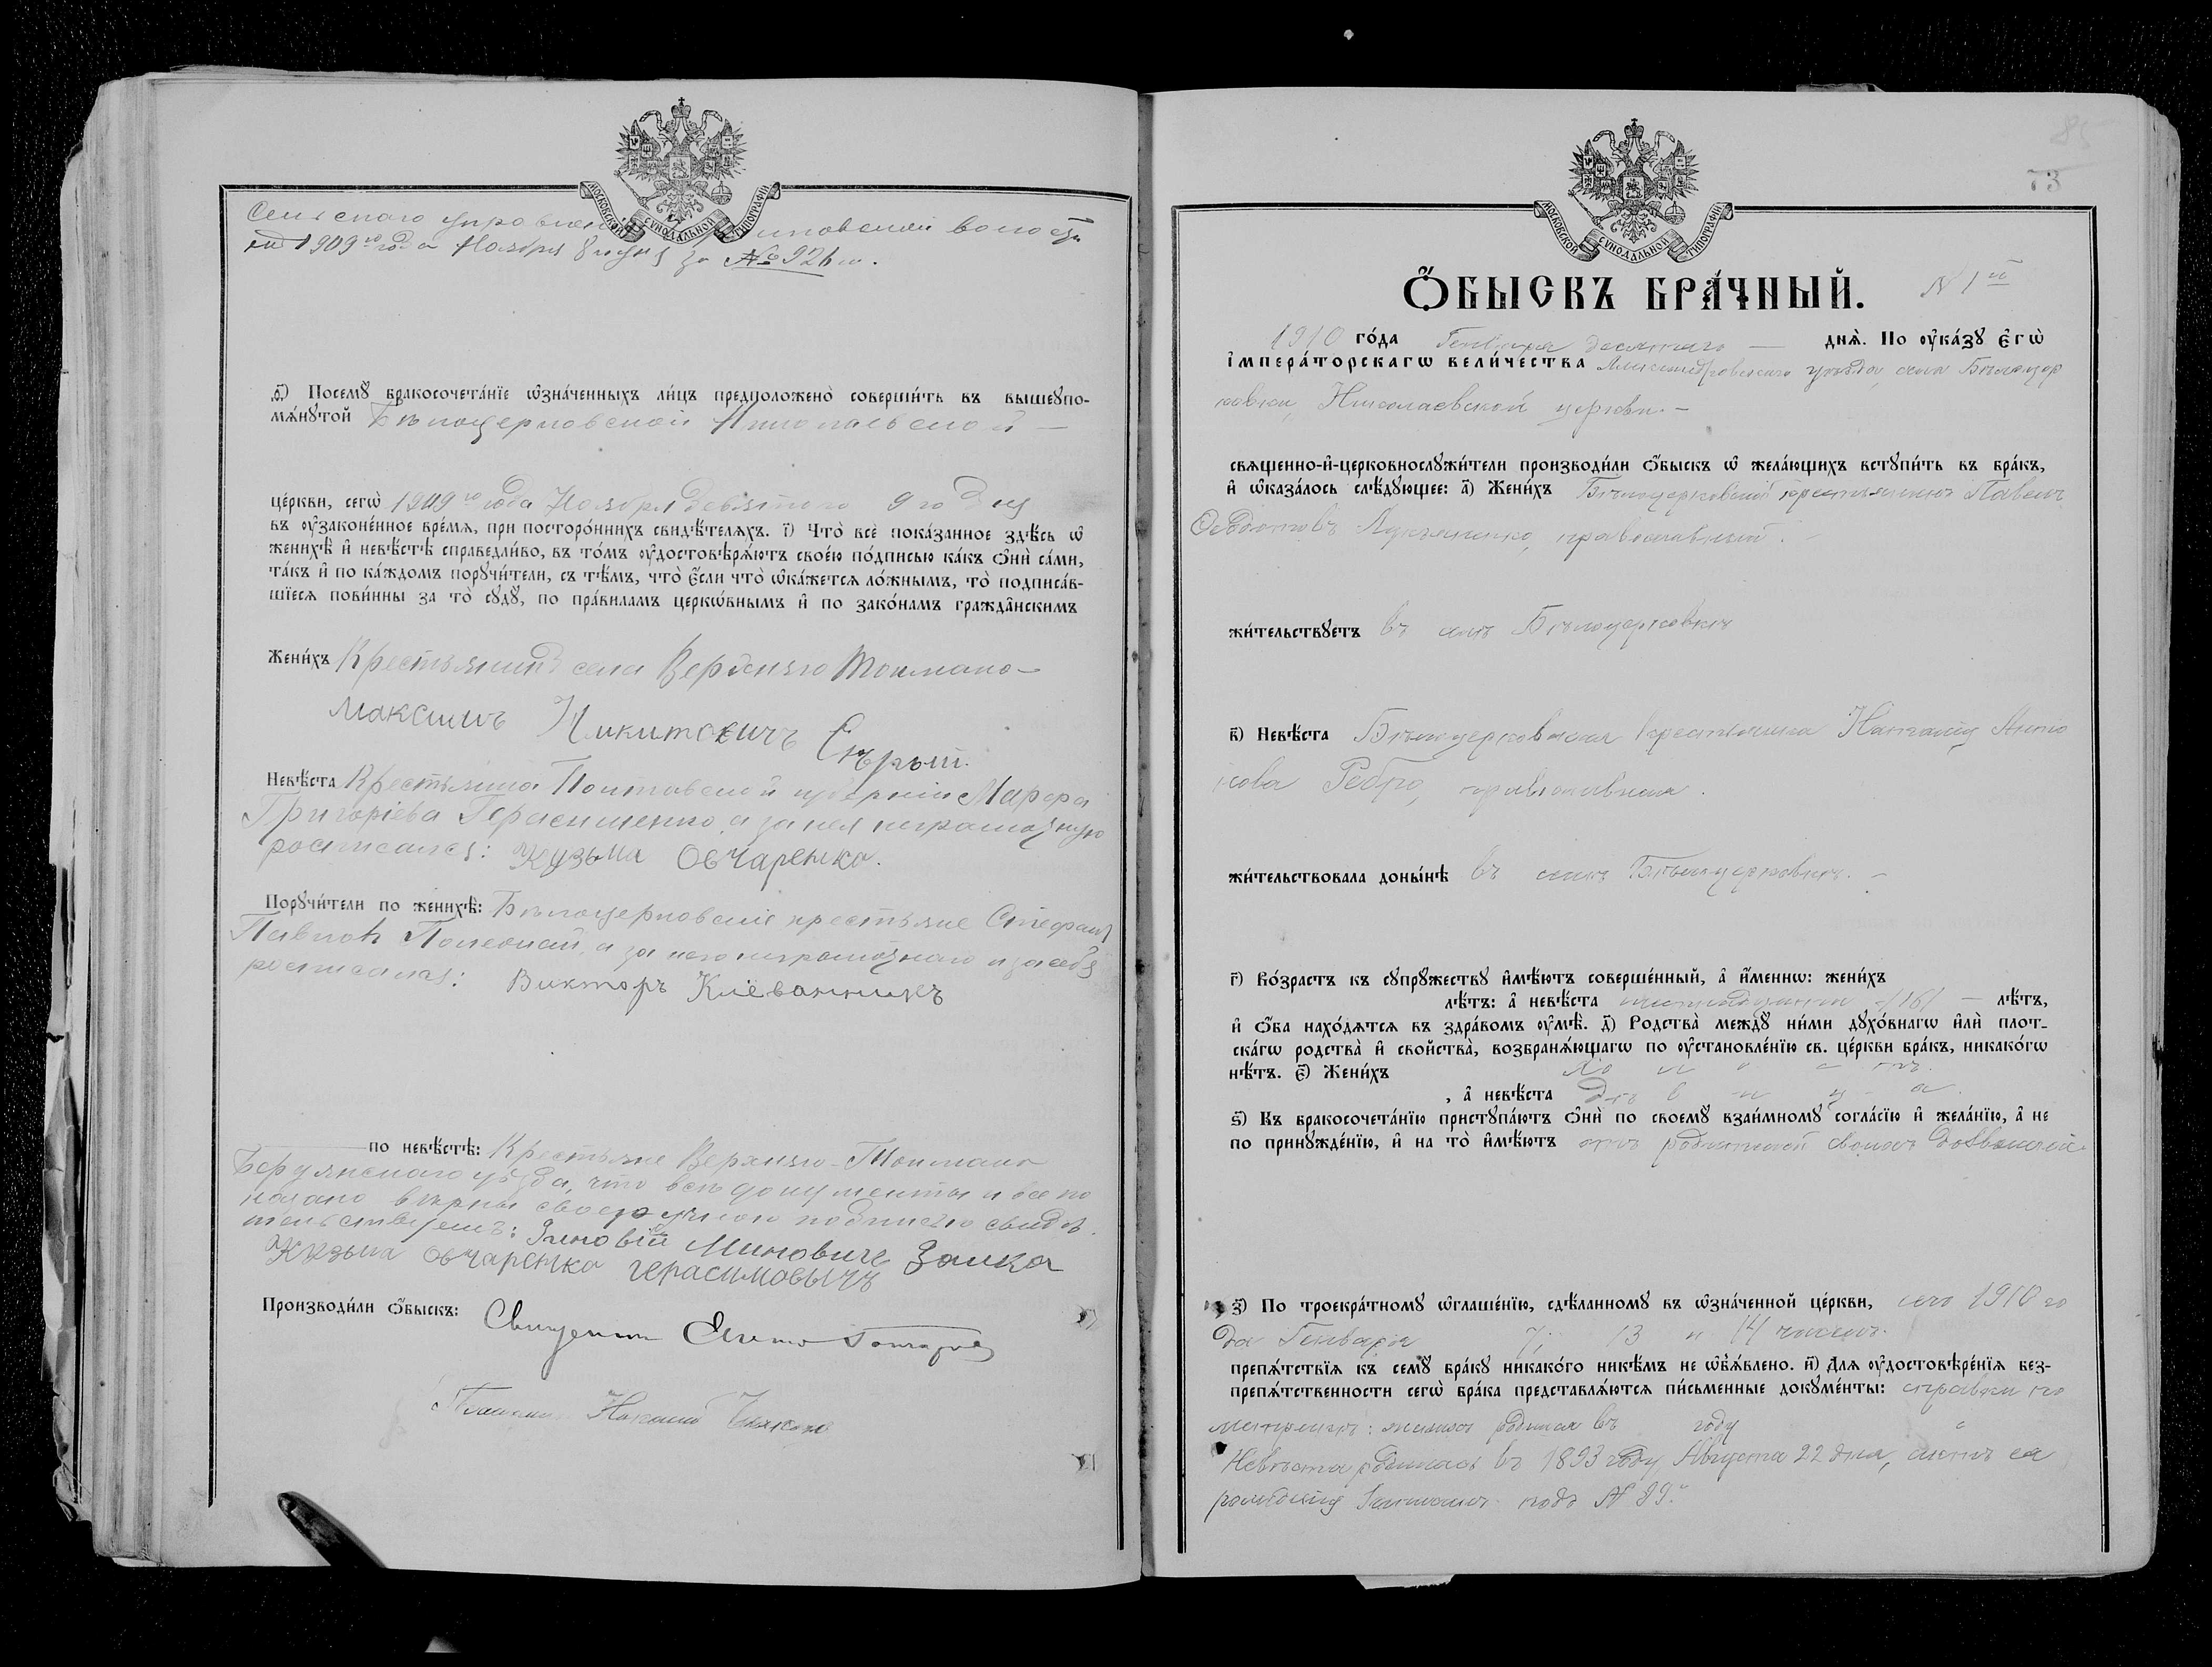 МОСКОВСКОЙ СѴНОДАЛЬНОЙ ТИПОГРАФІИ
Сельскаго волости
1909 го года Ноября 8 дня за № 926 м.
д҃) Посемꙋ̀ бракосочета́нїе ѡ҆зна́ченныхъ ли́цъ предположено̀ соверши́ть въ вышеꙋпо-
мѧ́нꙋтой Бѣлоцерковской Николаевской —
це́ркви, сегѡ̀ 1909 го года Ноября девятаго 9 го дня
въ ᲂу҆зако́ненное вре́мѧ, при посторо́ннихъ свидѣ́телѧхъ. і҃) Что̀ всѐ пока́занное здѣ́сь ѡ҆
женихѣ̀ и҆ невѣ́стѣ справедли́во, въ то́мъ ᲂу҆достовѣрѧ́ютъ свое́ю по́дписью ка́къ ѻ҆нѝ са́ми,
та́къ и҆ по ка́ждомъ порꙋчи́тели, съ тѣ́мъ, что̀ є҆́сли что̀ ѡ҆ка́жетсѧ ло́жнымъ, то̀ подписа́в-
шїесѧ пови́нны за то̀ сꙋдꙋ̀, по пра́виламъ церкѡ́внымъ и҆ по зако́намъ гражда̑нскимъ
Жени́хъ Крестьянинъ села Верхняго Токмака —
Максимъ Никитовичъ Сѣрый.
Невѣ́ста Крестьянка Полтавской губерніи Марфа
Григоріева Герасименко, а за нея неграмотную
росписался: Кузьма Овчаренко.
Порꙋчи́тели по женихѣ̀: Бѣлоцерковскіе крестьяне Стефанъ
Павловъ а за него неграмотнаго и за себя
росписался: Викторъ
по невѣ́стѣ: Крестьяне Верхняго-Токмака
Бердянскаго уѣзда, что всѣ документы и все по
казано вѣрны своеручною подписью свидѣ-
тельствуемъ: Зиновій Миновичъ Заика
Кузьма Овчаренко Герасимовычъ
Производи́ли ѻ҆́быскъ: Священникъ
73
МОСКОВСКОЙ СѴНОДАЛЬНОЙ ТИПОГРАФІИ
Ѻ҆́БЫСКЪ БРА́ЧНЫЙ. № 1 й
1910 го́да Генваря десятаго — днѧ̀. По ᲂу҆ка́зꙋ Є҆гѡ̀
і҆мпера́торскагѡ вели́чества Александровскаго уѣзда, села Бѣлоцер
ковки, Николаевской церкви. —
свѧщенно-и҆-церковнослꙋжи́тели производи́ли ѻ҆́быскъ ѡ҆ жела́ющихъ встꙋпи́ть въ бра́къ,
и҆ ѡ҆каза́лось слѣ́дꙋющее: а҃) Жени́хъ Бѣлоцерковскій крестьянинъ Павелъ
Ѳедотовъ православный. —
жи́тельствꙋетъ въ селѣ Бѣлоцерковкѣ
в҃) Невѣ́ста Бѣлоцерковская крестьянка Наталія Анто
нова Ребро, православная.
жи́тельствовала доны́нѣ въ селѣ Бѣлоцерковкѣ. —
г҃) Во́зрастъ къ сꙋпрꙋ́жествꙋ и҆мѣ́ютъ соверше́нный, а҆ и҆́меннѡ: жени́хъ
лѣ́тъ: а҆ невѣ́ста шестнадцати /16/ — лѣ́тъ,
и҆ ѻ҆́ба нахо́дѧтсѧ въ здра́вомъ ᲂу҆мѣ̀. д҃) Родства̀ междꙋ̀ ни́ми дꙋхо́внагѡ и҆лѝ плот-
ска́гѡ родства̀ и҆ сво́йства, возбранѧ́ющагѡ по ᲂу҆становле́нїю св. це́ркви бра́къ, никако́гѡ
нѣ́тъ. є҃) Жени́хъ холостъ
, а҆ невѣ́ста дѣвица.
ѕ҃) Къ бракосочета́нїю пристꙋпа́ютъ ѻ҆нѝ по своемꙋ̀ взаи́мномꙋ согла́сїю и҆ жела́нїю, а҆ не
по принꙋжде́нїю, и҆ на то̀ и҆мѣ́ютъ отъ родителей своихъ дозволеніе
з҃) По троекра́тномꙋ ѡ҆глаше́нїю, сдѣ́ланномꙋ въ ѡ҆зна́ченной це́ркви, сего 1910 го
да Генваря 7; 13 и 14 чиселъ.
препѧ́тствїѧ къ семꙋ̀ бра́кꙋ никако́го никѣ́мъ не ѡ҆б̾ѧ́влено. и҃) Длѧ ᲂу҆достовѣре́нїѧ без-
препѧ́тственности сегѡ̀ бра́ка представлѧ́ютсѧ пи́сьменные докꙋме́нты: справки по
метрикѣ: женихъ родился въ году
Невѣста родилась въ 1893 году Августа 22 дня, актъ ея
рожденія записанъ подъ № 89.